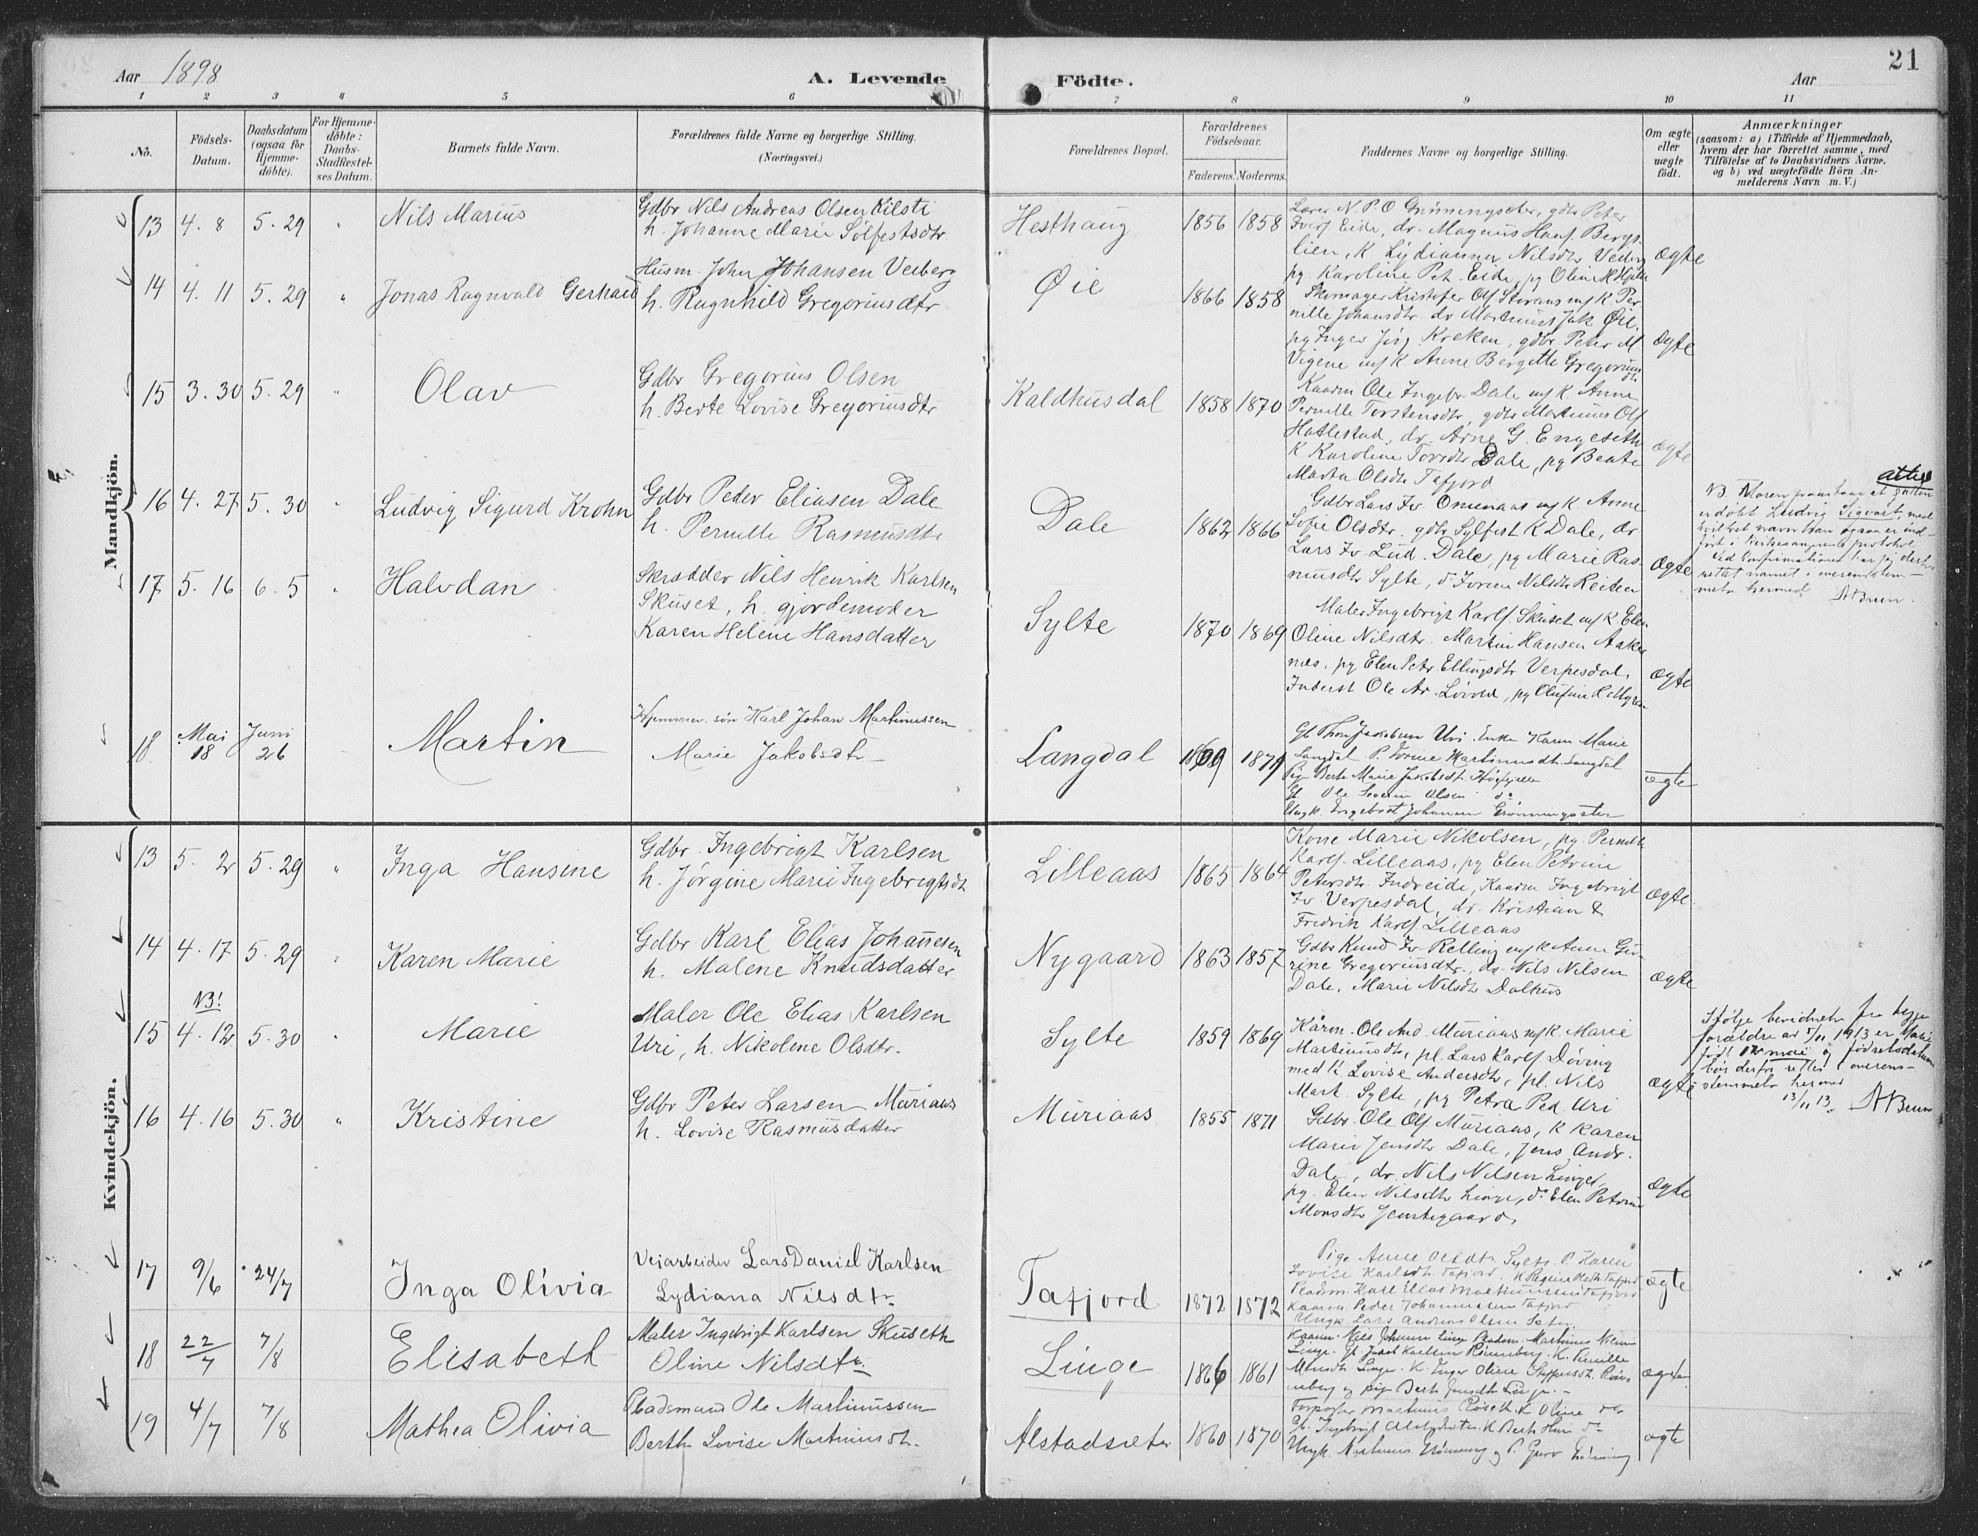 21
Aar 1898 A. Levende Födte. Aar
1 2 3 4 5 6 7 8 9 10 11
No.
Födsels-Datum.
Daabsdatum (ogsaa for Hjemmedöbte).
For Hjemmedöbte: Daabs-Stadfæstelses Datum.
Barnets fulde Navn.
Forældrenes fulde Navne og borgerlige Stilling.
(Næringsvei.)
Forældrenes Bopæl.
Forældrenes Födselsaar.
Faderens. Moderens.
Faddernes Navne og borgerlige Stilling.
Om ægte eller uægte födt.
Anmærkninger
(saasom: a) i Tilfælde af Hjemmedaab, hvem der har forrettet samme, med Tilföielse af to Daabsvidners Navne, og b) ved uægtefödte Börn Anmelderens Navn m. V.)
Mandkjön.
13 4. 8 5. 29 " Nils Marius
Gdbr Nils Andreas Olsen Kilsti
h. Johanne Marie Sylfestsdtr
Hesthaug 1856 1858
Lærer N. P. O Grönningsæter, gdbr Peter
Eide, dr. Magnus Hans Bergs-
lien, K Lydianna Nilsdtr
pg. Karoline Pet. Eide, pg Oline
ægte
14 4. 11 5. 29 " Jonas Ragnvald Gerhard
Husm. John Johansen Veiberg
h. Ragnhild Gregoriusdtr
Øie 1866 1858
Skomager Kristofer Olf m/ K. Per-
nille Johansdtr. dr Martinus Jak Øie,
pg Inger Jörg. Kreken, gdbr. Peter M.
Vigene m/ K Anne Bergitte Gregorius
dtr
ægte
15 3. 30 5. 29 " Olav
Gdbr Gregorius Olsen
h. Berte Lovise Gregoriusdtr
Kaldhusdal 1858 1870
Kaarm Ole Ingebr. Dale m/ K Anne
Pernille Torstensdtr, gdbr Martinus Olf
Hatlestad, dr. Arne G. Engeseth
K Karoline Dale, pg Beate
Marta Olsdtr Tafjord
ægte
16 4. 27 5. 30 " Ludvig Sigurd Krohn
Gdbr Peder Eliasen Dale
h. Pernille Rasmusdtr
Dale 1862 1866
Gdbr Lars Iv Omenaas m/ K Anne
Sofie Olsdtr. gdbr Sylfest K Dale, dr.
Lars Iv Lud. Dale, pg Marie Ras-
musdtr Sylte, do Nilsdtr
ægte
NB. Moren at gutten
er döbt Ludvig Sigvart, med
hvilket navn han ogsaa er ind-
fört i protokol.
Ved Confirmationen har jeg derfor
rettet navnet i overensstem-
melse hermed. ABruun.
17 5. 16 6. 5 " Halvdan
Skrædder Nils Henrik Karlsen
Skuset, h. gjordemoder
Karen Helene Hansdatter
Sylte 1870 1869
Maler Ingebrigt Karlf Skuset m/ K Elen
Oline Nilsdtr. Martin Hansen Aakre
næs, pg Elen Petr Ellingsdtr Verpesdal,
Inderst Ole Ar. Lövold, pg Olufine
ægte
18 Mai 18 Juni 26 Martin
Hjemmev. sön Karl Johan Martinussen
Marie Jakobsdtr
Langdal 1869 1871
Uri. Enke Karen Marie
Langdal P. Martinusdt. Langdal
Pig Berte Marie Jakobsdt
Ole Severin Olsen do
Ungk. Ingebrigt Johansen Grönningsæter
ægte
Kvindekjön.
13 5. 2 5. 29 " Inga Hansine
Gdbr. Ingebrigt Karlsen
h. Jörgine Marie Ingebrigtsdt
Lilleaas 1865 1864
Kone Marie Nikolsen, pg. Pernille
Karlf. Lilleaas, pg Elen Petrine
Petersdtr Indreide, Kaarm Ingebrigt
Iv Verpesdal, dr. Kristian &
Fredrik Karlf. Lilleaas
ægte
14 4. 17 5. 29 " Karen Marie
Gdbr Karl Elias Johannesen
h. Malene Knudsdatter
Nygaard 1863 1857
Gdbr Knud Iv Relling m/ K Anne Gu-
rine Gregoriusdtr., dr Nils Nilsen
Dale, Marie Nilsdtr Dalhus
ægte
NB!
15 4. 12 5. 30 " Marie
Maler Ole Elias Karlsen
Uri, h. Nikolene Olsdtr.
Sylte 1859 1869
Kårm. Ole And. Muriaas m/ K Marie
Martinusdtr, pl. Lars Karlf Döving
med K Lovise Andersdtr, pl. Nils
Mart. Sylte, pg Petra Ped Uri
ægte
Ifölge bevidnelse fra begge
forældre av 5/11 1913 er Marie
født 12 mai og födselsdatum
bör derfor rettes i overens-
stemmelse hermed
13/11 13. ABruun
16 4. 16 5. 30 " Kristine
Gdbr Peter Larsen Muriaas
h. Lovise Rasmusdatter
Muriaas 1855 1871
Gdbr. Ole Olf Muriaas, K Karen
Marie Jensdtr Dale, Jens Andr.
Dale, dr. Nils Nilsen Linge,
pg. Elen Nilsdtr Linge, do Elen Petrine
Monsdtr
ægte
17 9/6 24/7 Inga Olivia
Veiarbeider Lars Daniel Karlsen
Lydiana Nilsdtr.
Tafjord 1872 1872
Pige Anne Olsdtr Sylte. P. Karen
Lovise Karlsdtr. Tafjord. K Tafjord
Pladsm. Karl Elias Martinussen Tafjord
Kaarm Peder Johannessen Tafjord
Ungk Lars Andreas Olsen
ægte
18 22/7 7/8 Elisabeth
Maler Ingebrigt Karlsen Skuseth
Oline Nilsdtr.
Linge 1866 1861
Kaarm. Nils Johann Linge Pladsm. Martinus
Linge. Jakob Karlsen Rönneberg. K. Pernille
Monsdtr Linge. K. Inger Oline Steffensdt. Rön-
neberg og pige Berte Jensdtr Linge.
ægte
19 4/7 7/8 Mathea Olivia
Pladsmand Ole Martinussen
Berthe Lovise Martinusdt.
Alstadsæter 1860 1870
Forpagter Martinus K Oline do
Ingebrigt Alstadsæter K. Berte do
Ungk. Martinus og P. Guro
ægte